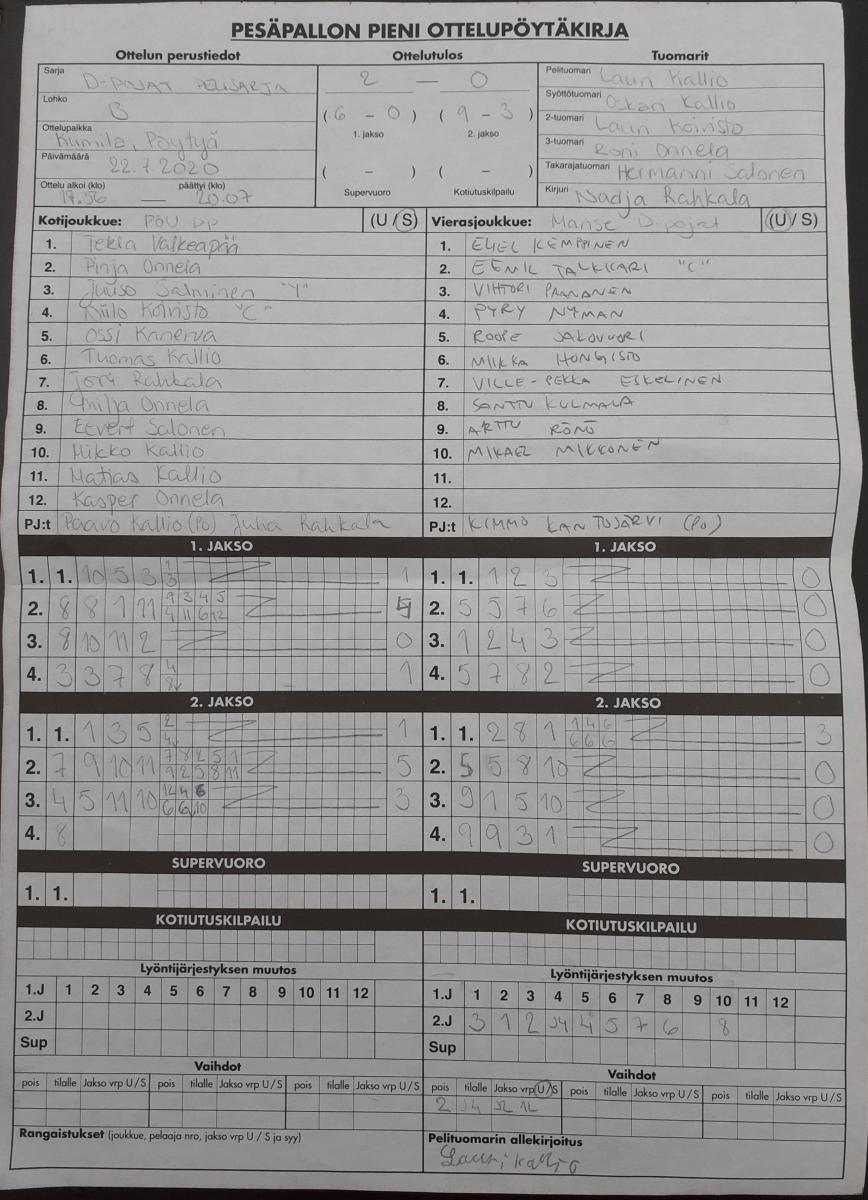 PESÄPALLON PIENI OTTELUPÖYTÄKIRJA
Ottelun perustiedot Ottelutulos Tuomarit
Sarja D-POJAT PELISARJA
Lohko B
Ottelupaikka Kumila, Pöytyä
Päivämäärä 22.7.2020
Ottelu alkoi (klo) päättyi (klo)
17.56 — 20.07
2 — 0
(6 - 0) (9 - 3)
1. jakso 2. jakso
( - ) ( - )
Supervuoro Kotiutuskilpailu
Pelituomari Lauri Kallio
Syöttötuomari Oskari Kallio
2-tuomari Lauri Koivisto
3-tuomari Roni Onnela
Takarajatuomari Hermanni Salonen
Kirjuri Nadja Rahkala
Kotijoukkue: PöU DP (U/S)
1. Tekla Valkeapää
2. Pinja Onnela
3. Juuso Salminen "Y"
4. Niilo Koivisto "C"
5. Ossi Kanerva
6. Tuomas Kallio
7. Joni Rahkala
8. Onnela
9. Eevert Salonen
10. Mikko Kallio
11. Matias Kallio
12. Kasper Onnela
PJ:t Paavo Kallio (Po) Juha Rahkala
Vierasjoukkue: Manse D-pojat (U/S)
1. ELIEL KEMPPINEN
2. EEMIL TALKKARI "C"
3. VIHTORI PAANANEN
4. PYRY NYMAN
5. ROOPE JAKOVUORI
6. MIIKKA HONGISTO
7. VILLE-PEKKA ESKELINEN
8. SANTTU KULMALA
9. ARTTU RÖNÖ
10. MIKAEL MIKKONEN
11.
12.
PJ:t KIMMO KANTOJÄRVI (Po)
1. JAKSO
1. 1. 10 5 3 1 3 1
2. 8 8 1 11 9 3 4 5 4 11 6 12 4
3. 8 10 11 2 0
4. 3 3 7 8 4 8 1
1. JAKSO
1. 1. 1 2 3 0
2. 5 5 7 6 0
3. 1 2 4 3 0
4. 5 7 8 2 0
2. JAKSO
1. 1. 1 3 5 2 4 1
2. 7 9 10 11 7 8 2 5 1 9 2 5 8 11 5
3. 4 5 11 10 12 4 6 6 6 10 3
4. 8
2. JAKSO
1. 1. 2 8 1 1 4 6 6 6 6 3
2. 5 5 8 10 0
3. 9 1 5 10 0
4. 9 9 3 1 0
SUPERVUORO
1. 1.
SUPERVUORO
1. 1.
KOTIUTUSKILPAILU
KOTIUTUSKILPAILU
Lyöntijärjestyksen muutos
1.J 1 2 3 4 5 6 7 8 9 10 11 12
2.J
Sup
Vaihdot
pois tilalle Jakso vrp U/S pois tilalle Jakso vrp U/S pois tilalle Jakso vrp U/S
Rangaistukset (joukkue, pelaaja nro, jakso vrp U / S ja syy)
Lyöntijärjestyksen muutos
1.J 1 2 3 4 5 6 7 8 9 10 11 12
2.J 3 1 2 J4 4 5 7 6 8
Sup
Vaihdot
pois tilalle Jakso vrp U/S pois tilalle Jakso vrp U/S pois tilalle Jakso vrp U/S
2 J4
Pelituomarin allekirjoitus
Lauri Kallio